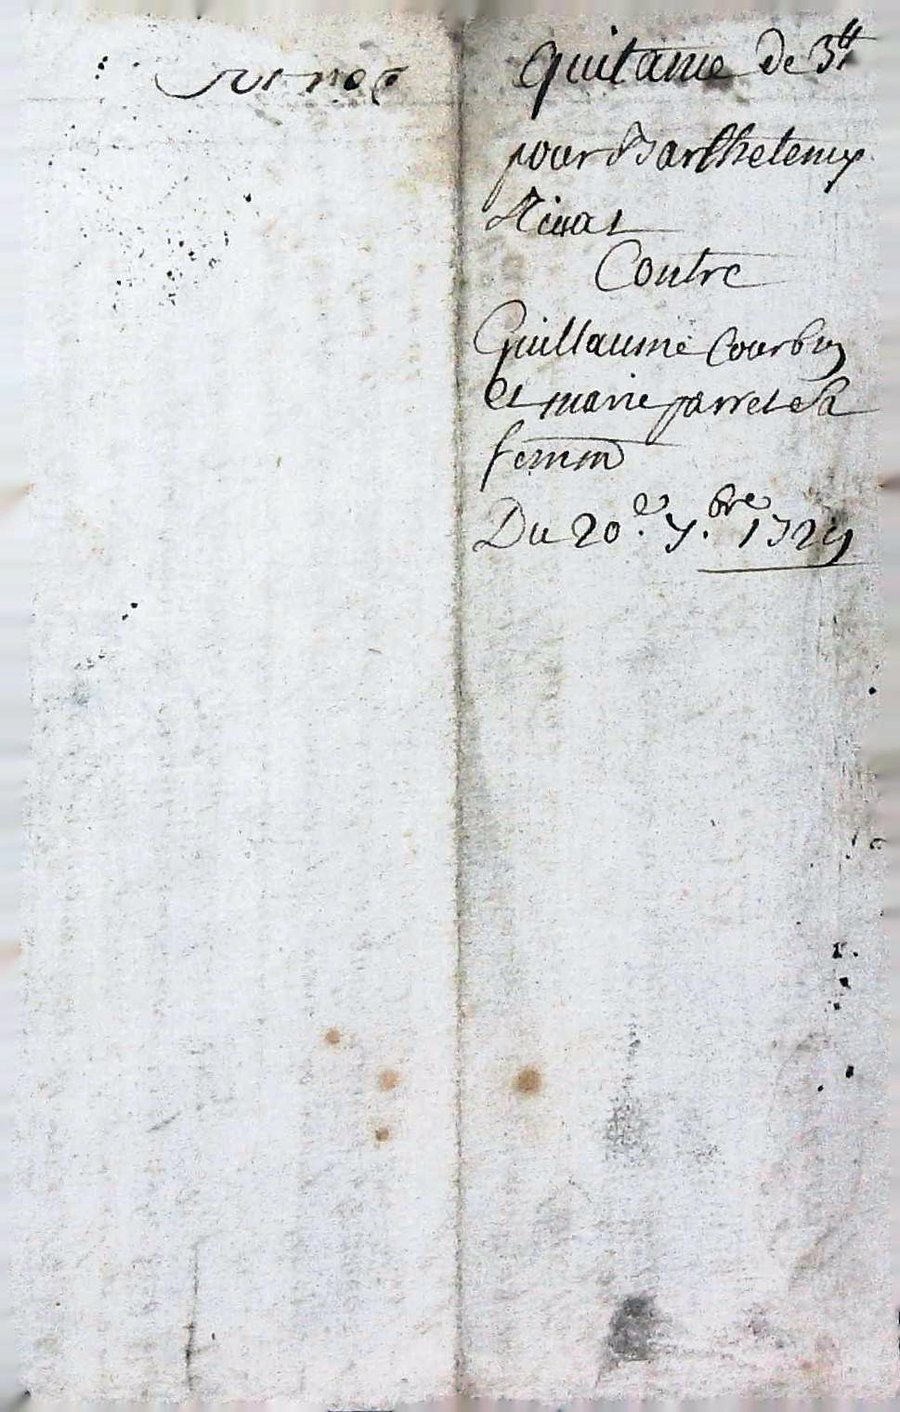 Quitance de 3 tt
pour Barthelemy
Contre
Guillaume Courbin
et marie parret Sa
femme
Du 20.e 7.bre 1729